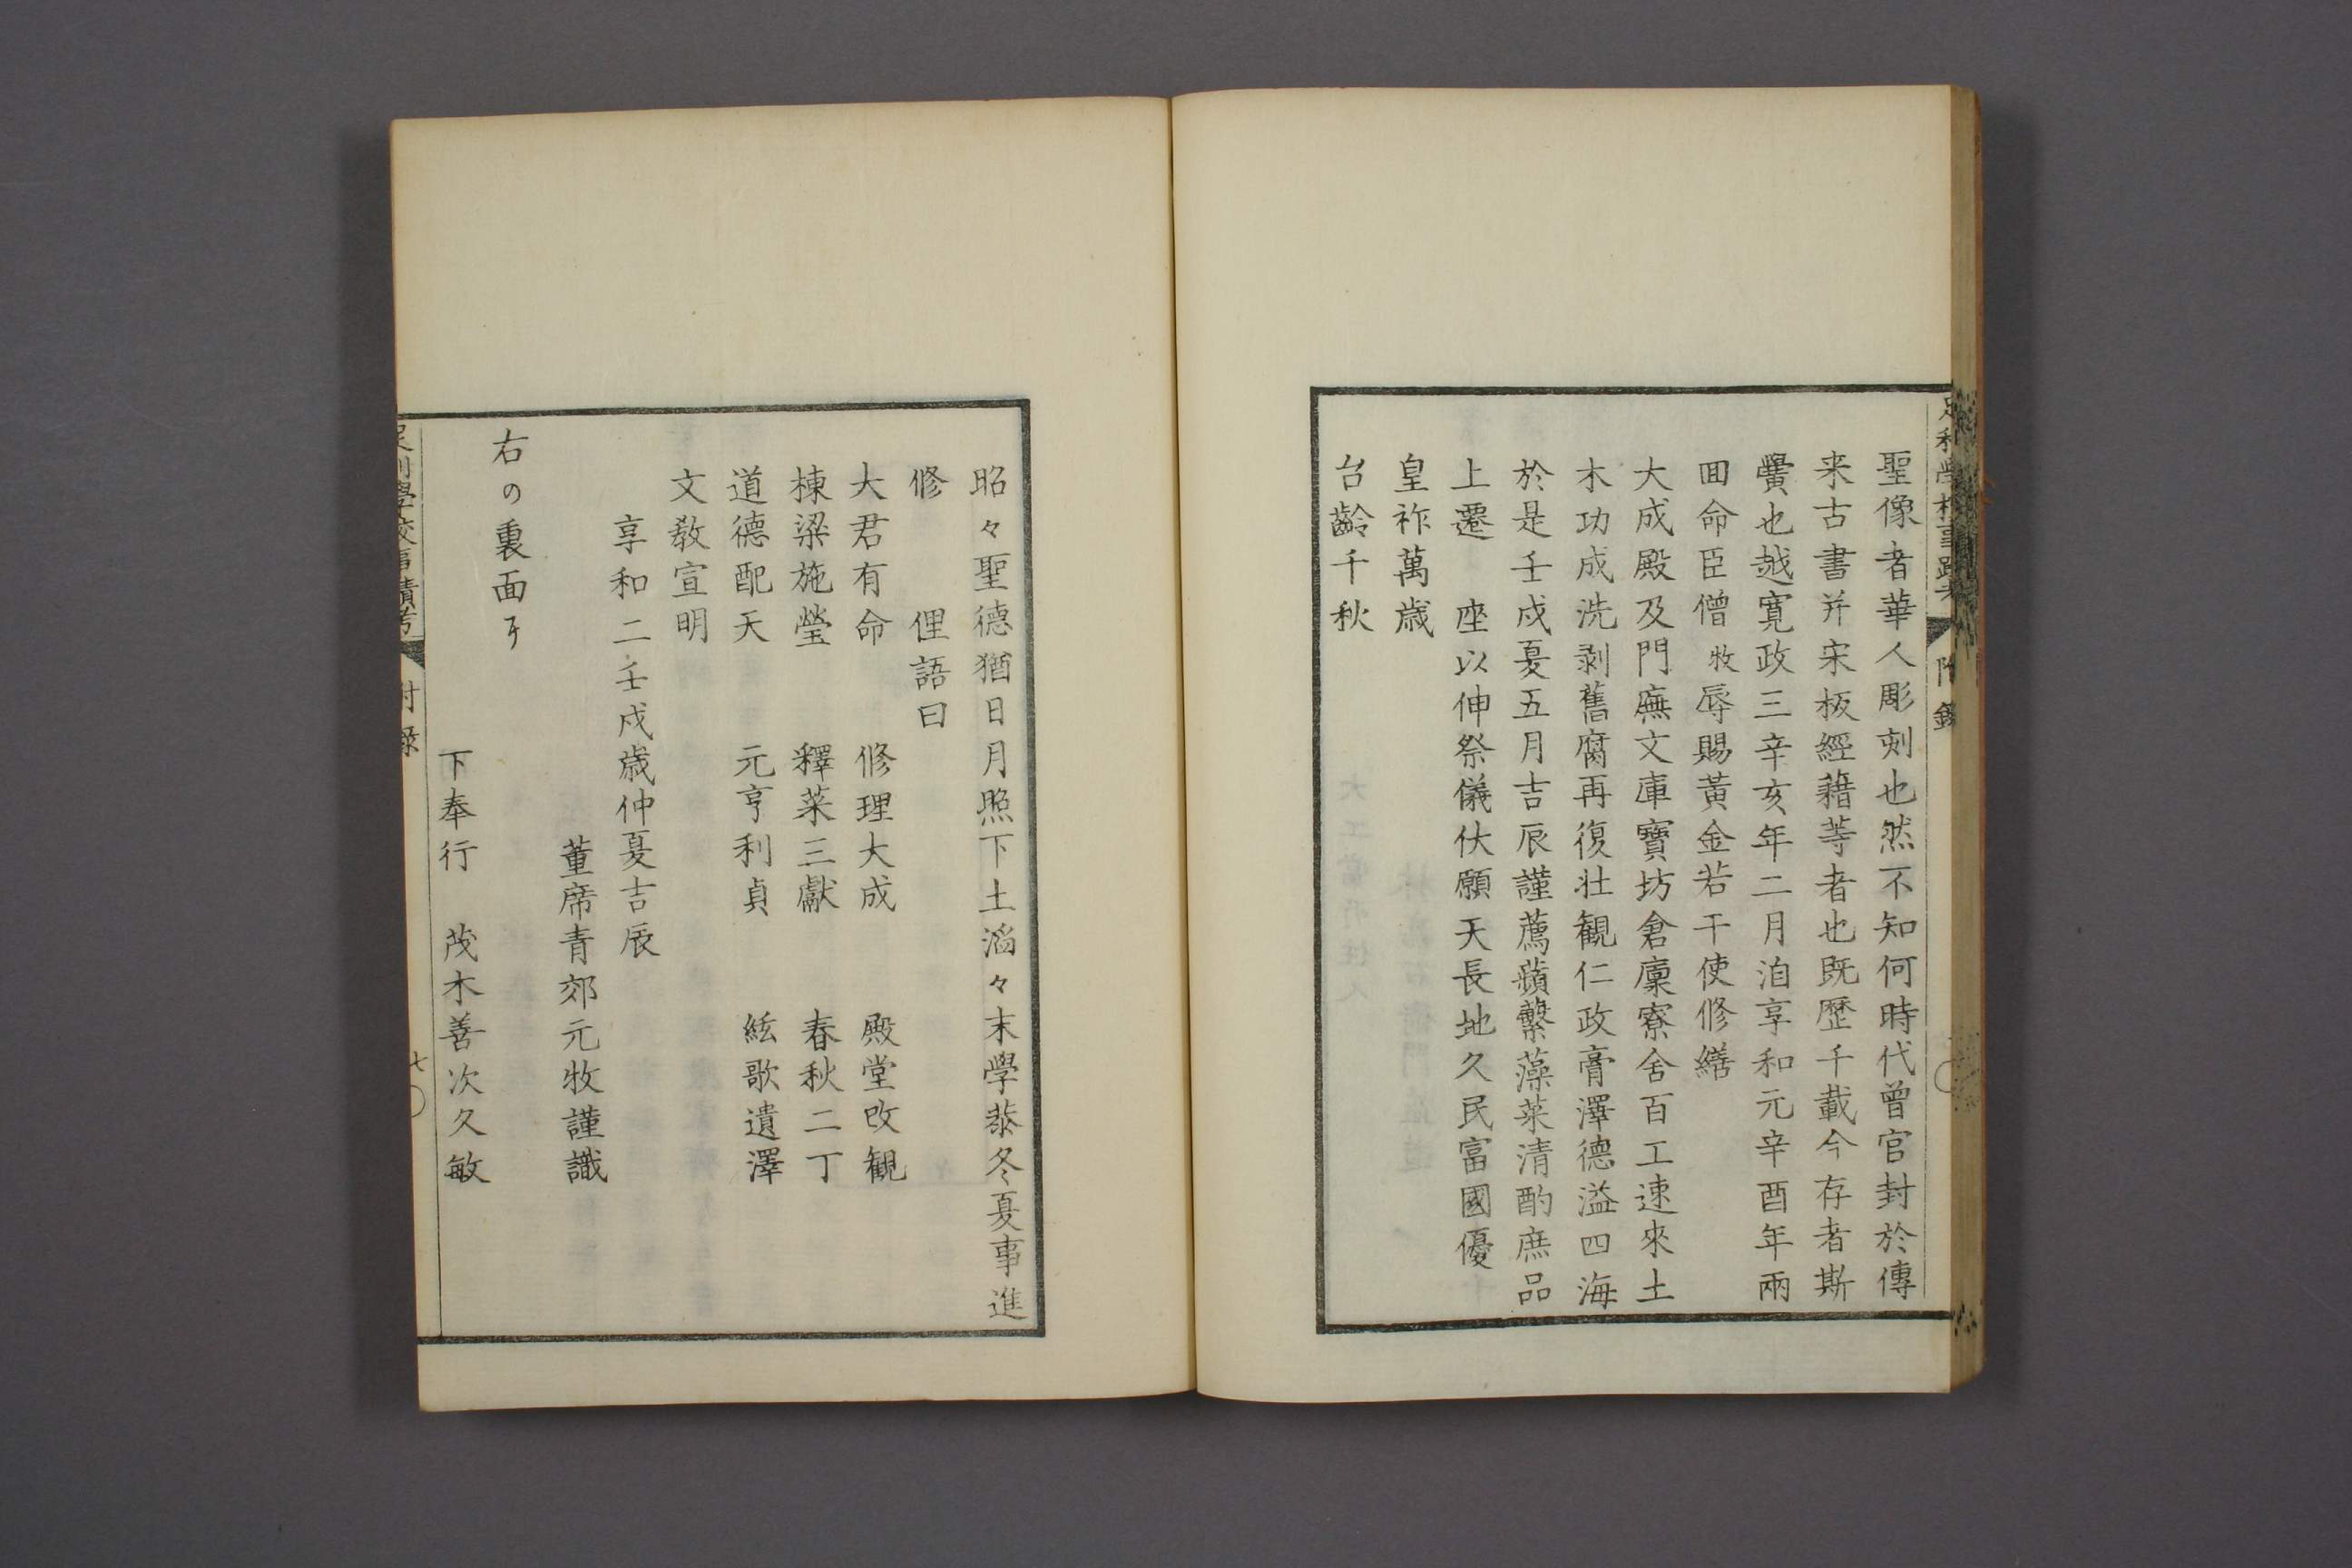 聖像者華人彫刻也然不知何時代曾官封於傳
来古書并宋板經籍等者也既歴千載今存者斯
黌也越寛政三辛亥年二月洎享和元辛酉年兩
囬命臣僧牧辱賜黄金若干使修繕
大成殿及門廡文庫寶坊倉廩寮舎百工速來土
木功成洗剥舊腐再復壮観仁政膏澤德溢四海
於是壬戌夏五月吉辰謹薦蘋蘩藻菜清酌庶品
上遷 座以伸祭儀伏願天長地久民富國優
皇祚萬歳
台齡千秋
昭々聖德猶日月照下土滔々末學恭冬夏事進
修 俚語曰
大君有命 修理大成 殿堂改観
棟梁施瑩 釋菜三獻 春秋二丁
道德配天 元亨利貞 絃歌遺澤
文敎宣明
享和二壬戌歳仲夏吉辰
董席青郊元牧謹識
右の裏面ヿ
下奉行 茂木善次久敏
足利學校事蹟考 附録 七